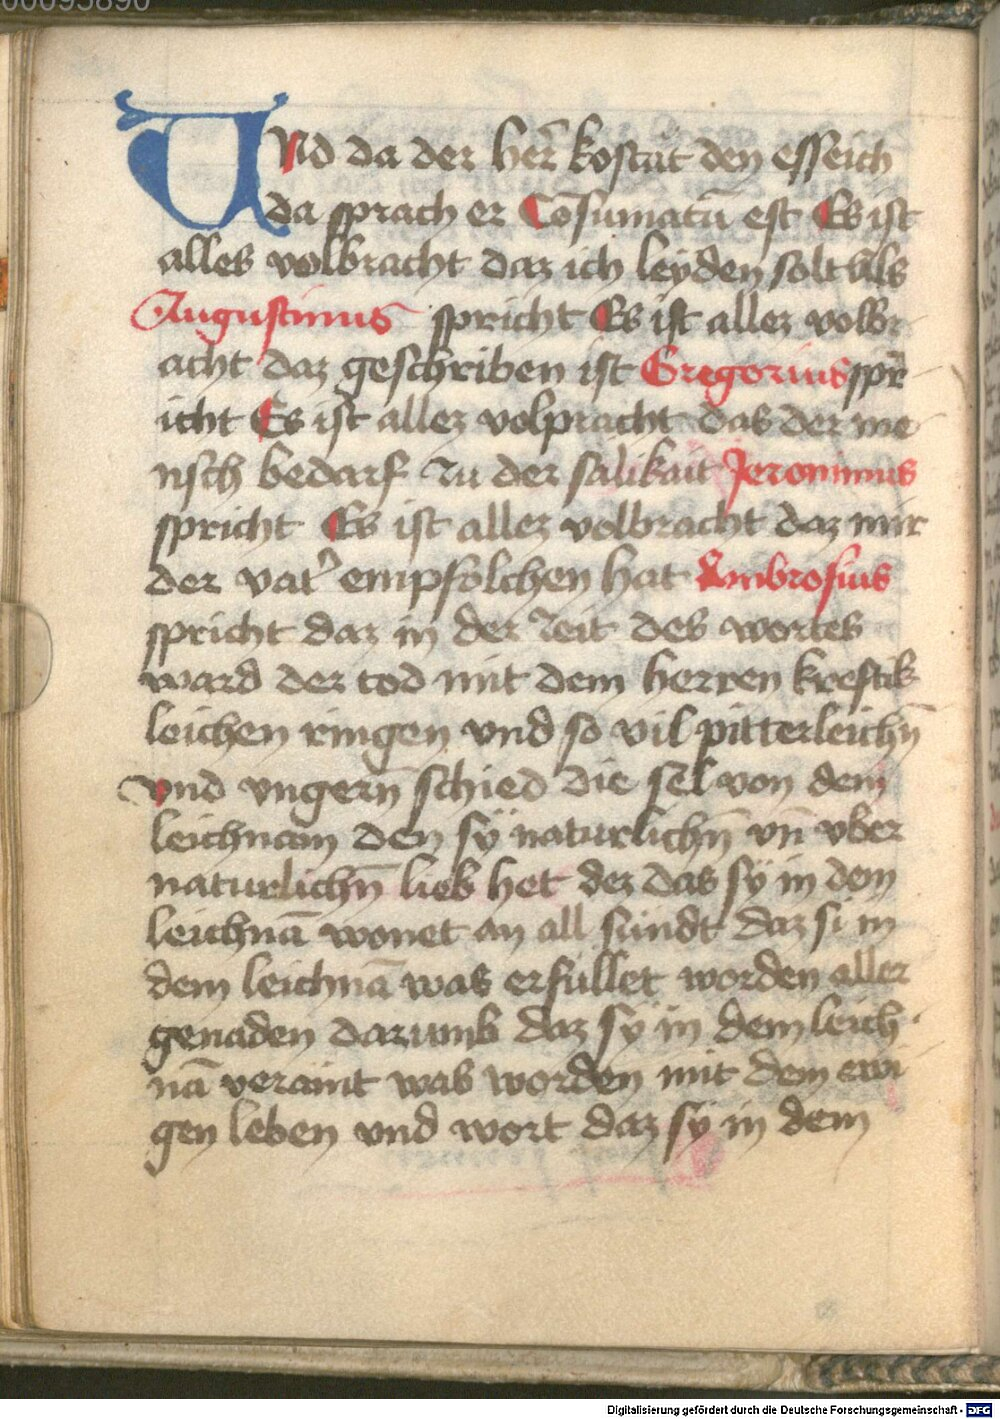 00095890
Und da der her̄ kostat den esseich
da sprach er Cōsumatū est Es ist
alles volbracht daz ich leyden solt als
Augustinus spricht Es ist allez volbr
acht daz geschriben ist Gregorius spr
icht Es ist allez volpracht das der me
nsch bedarf zu der salikait Jeronimus
spricht Es ist allez volbracht daz mir
der vat' empfolchen hat Ambrosius
spricht daz in der zeit des wortes
ward der tod mit dem herren kreftik
leichen ringen vnd so vil pitterleichn̄
vnd vngern̄ schied die sel von dem
leichnam den sÿ naturlichn̄ vn̄ vber
naturlichn̄ lieb het dez das sÿ in dem
leichnā wonet an all sündt daz si in
dem leichnā was erfüllet worden aller
genaden darumb daz sy in dem leich
nā veraint was worden mit dem ewi
gen leben vnd wort daz sÿ in dem
Digitalisierung gefördert durch die Deutsche Forschungsgemeinschaft - DFG